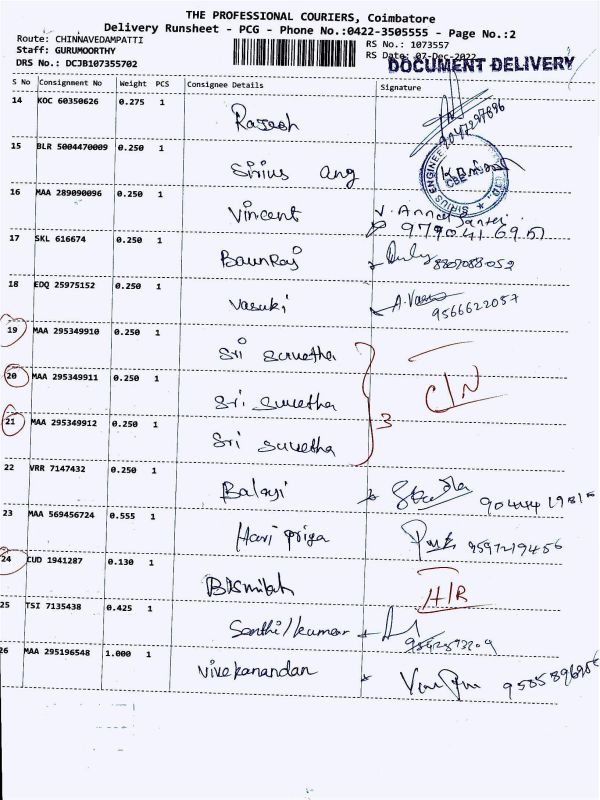 THE PROFESSIONAL COURIERS, Coimbatore
Delivery Runsheet - PCG - Phone No.:0422-3505555 - Page No.:2
Route: CHINNAVEDAMPATTI
Staff: GURUMOORTHY
DRS No.: DCJB107355702
RS No.: 1073557
RS Date: 07-Dec-2022
DOCUMENT DELIVERY
S No Consignment No Weight PCS Consignee Details Signature
14 KOC 60350626 0.275 1 Rajesh
15 BLR 5004470009 0.250 1 Sirius ang
SIRIUS ENGINEE
CBE
16 MAA 289090096 0.250 1 Vincent V. Annal
17 SKL 616674 0.250 1 BawnRaj 8807088052
18 EDQ 25975152 0.250 1 Vasuki A. Vasu 9566622057
19 MAA 295349910 0.250 1 Sri suvetha
20 MAA 295349911 0.250 1 Sri suvetha 3 C/N
21 MAA 295349912 0.250 1 Sri suvetha
22 VRR 7147432 0.250 1 Balaji
23 MAA 569456724 0.555 1 Hari priya 9597219456
24 CUD 1941287 0.130 1 Bismilah H/R
25 TSI 7135438 0.425 1 Senthilkumar
26 MAA 295196548 1.000 1 Vivekanandan